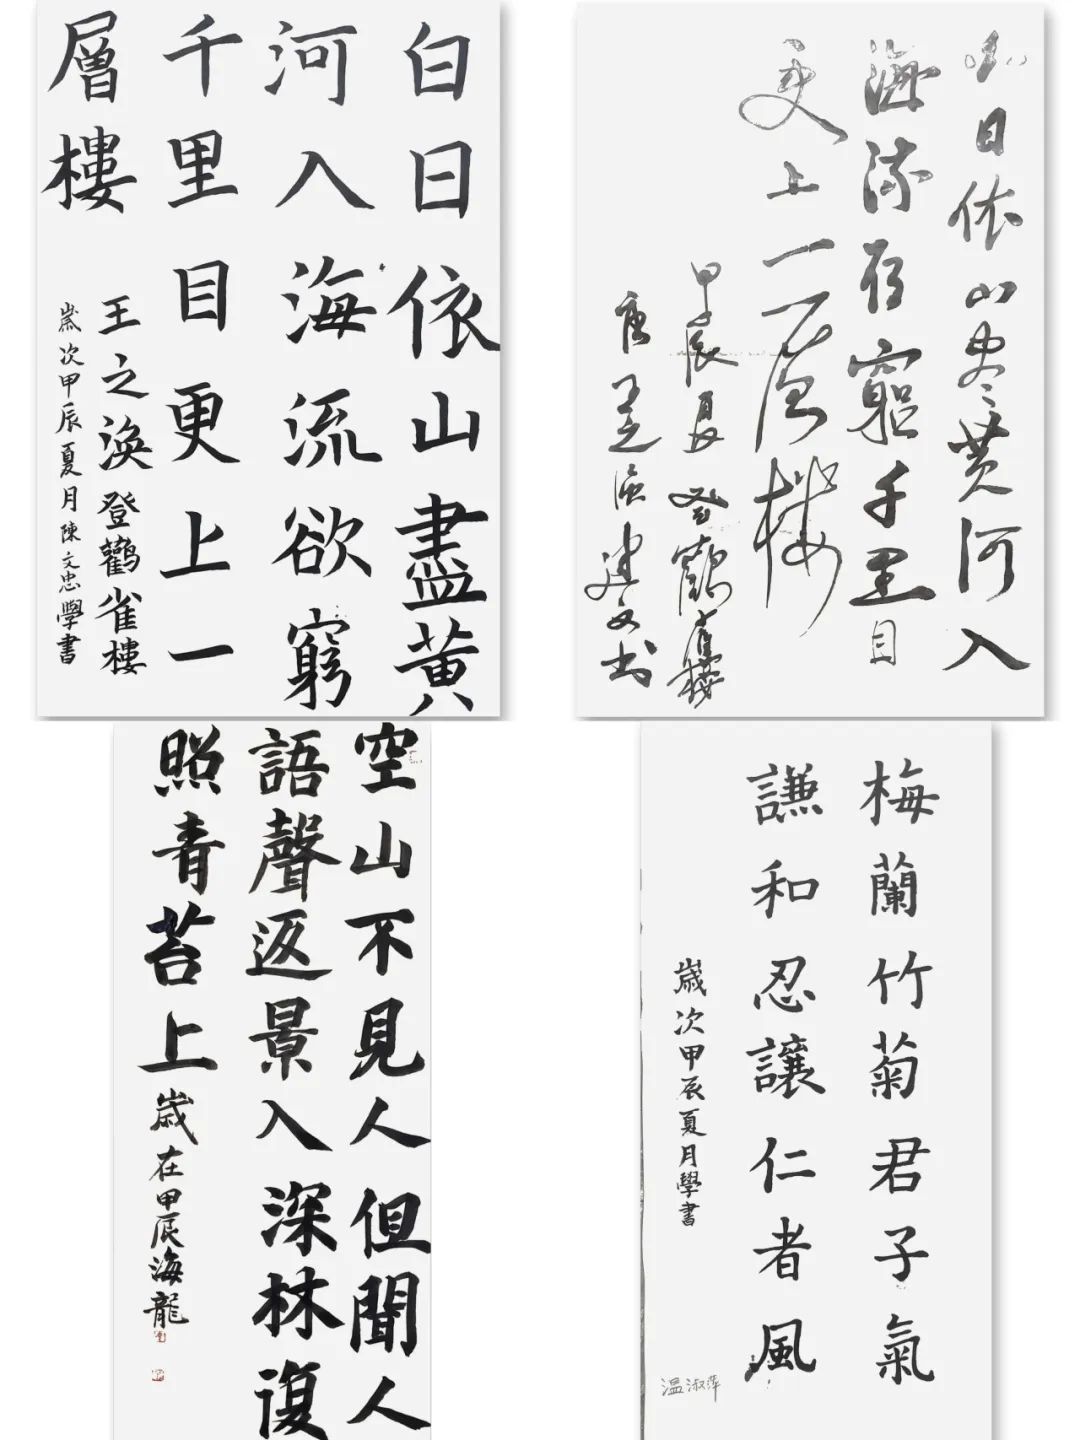 白日依山盡黃
河入海流欲窮
千里目更上一
層樓
王之渙登鸛雀樓
歲次甲辰夏月陳文忠學書
白日依山尽黄河入
海流欲窮千里目
更上一层楼
甲辰夏登鸛雀樓
唐王之渙建文书
空山不見人但聞人
語聲返景入深林復
照青苔上
歲在甲辰海龍
梅蘭竹菊君子氣
謙和忍讓仁者風
歲次甲辰夏月學書
温淑萍